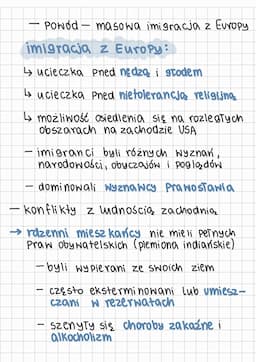 — powód — masowa imigracja z Europy
imigracja z Europy:
↳ ucieczka przed nędzą i głodem
↳ ucieczka przed nietolerancją religijną
↳ możliwość osiedlenia się na rozległych
obszarach na zachodzie USA
— imigranci byli różnych wyznań,
narodowości, obyczajów i poglądów
— dominowali wyznawcy prawosławia
— konflikty z ludnością zachodnią
→ rdzenni mieszkańcy nie mieli pełnych
praw obywatelskich (plemiona indiańskie)
— byli wypierani ze swoich ziem
— często eksterminowani lub umiesz-
czani w rezerwatach
— szerzyły się choroby zakaźne i
alkoholizm